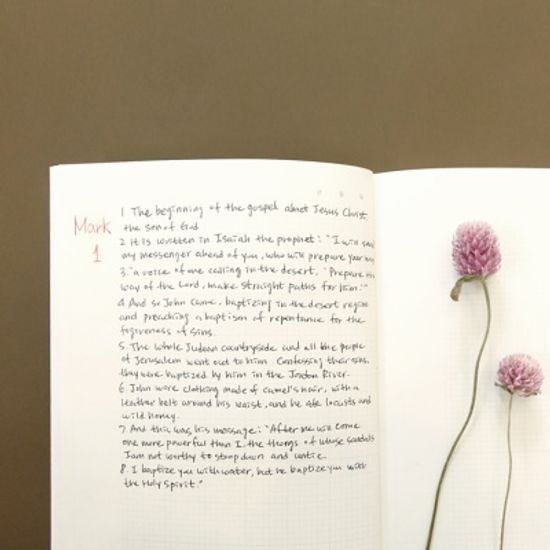 Mark
1
1 The beginning of the gospel about Jesus Christ,
the son of God
2 it is written in Isaiah the prophet: "I will
my messenger ahead of you, who will prepare your
3. "a voice of one calling in the desert, 'Prepare
way of the Lord, make straight paths for him.'"
4 And so John came, baptizing in the desert region
and preaching a baptism of repentance for the
forgiveness of sins.
5 The whole Judean countryside and all the people
of Jerusalem went out to him. Confessing their sins,
they were baptized by him in the Jordan River.
6. John wore clothing made of camel's hair, with a
leather belt around his waist, and he ate locusts and
wild honey.
7 And this was his message: "After me will come
one more powerful than I, the thongs of whose sandals
I am not worthy to stoop down and untie.
8. I baptize you with water, but he baptize you with
the Holy Spirit."